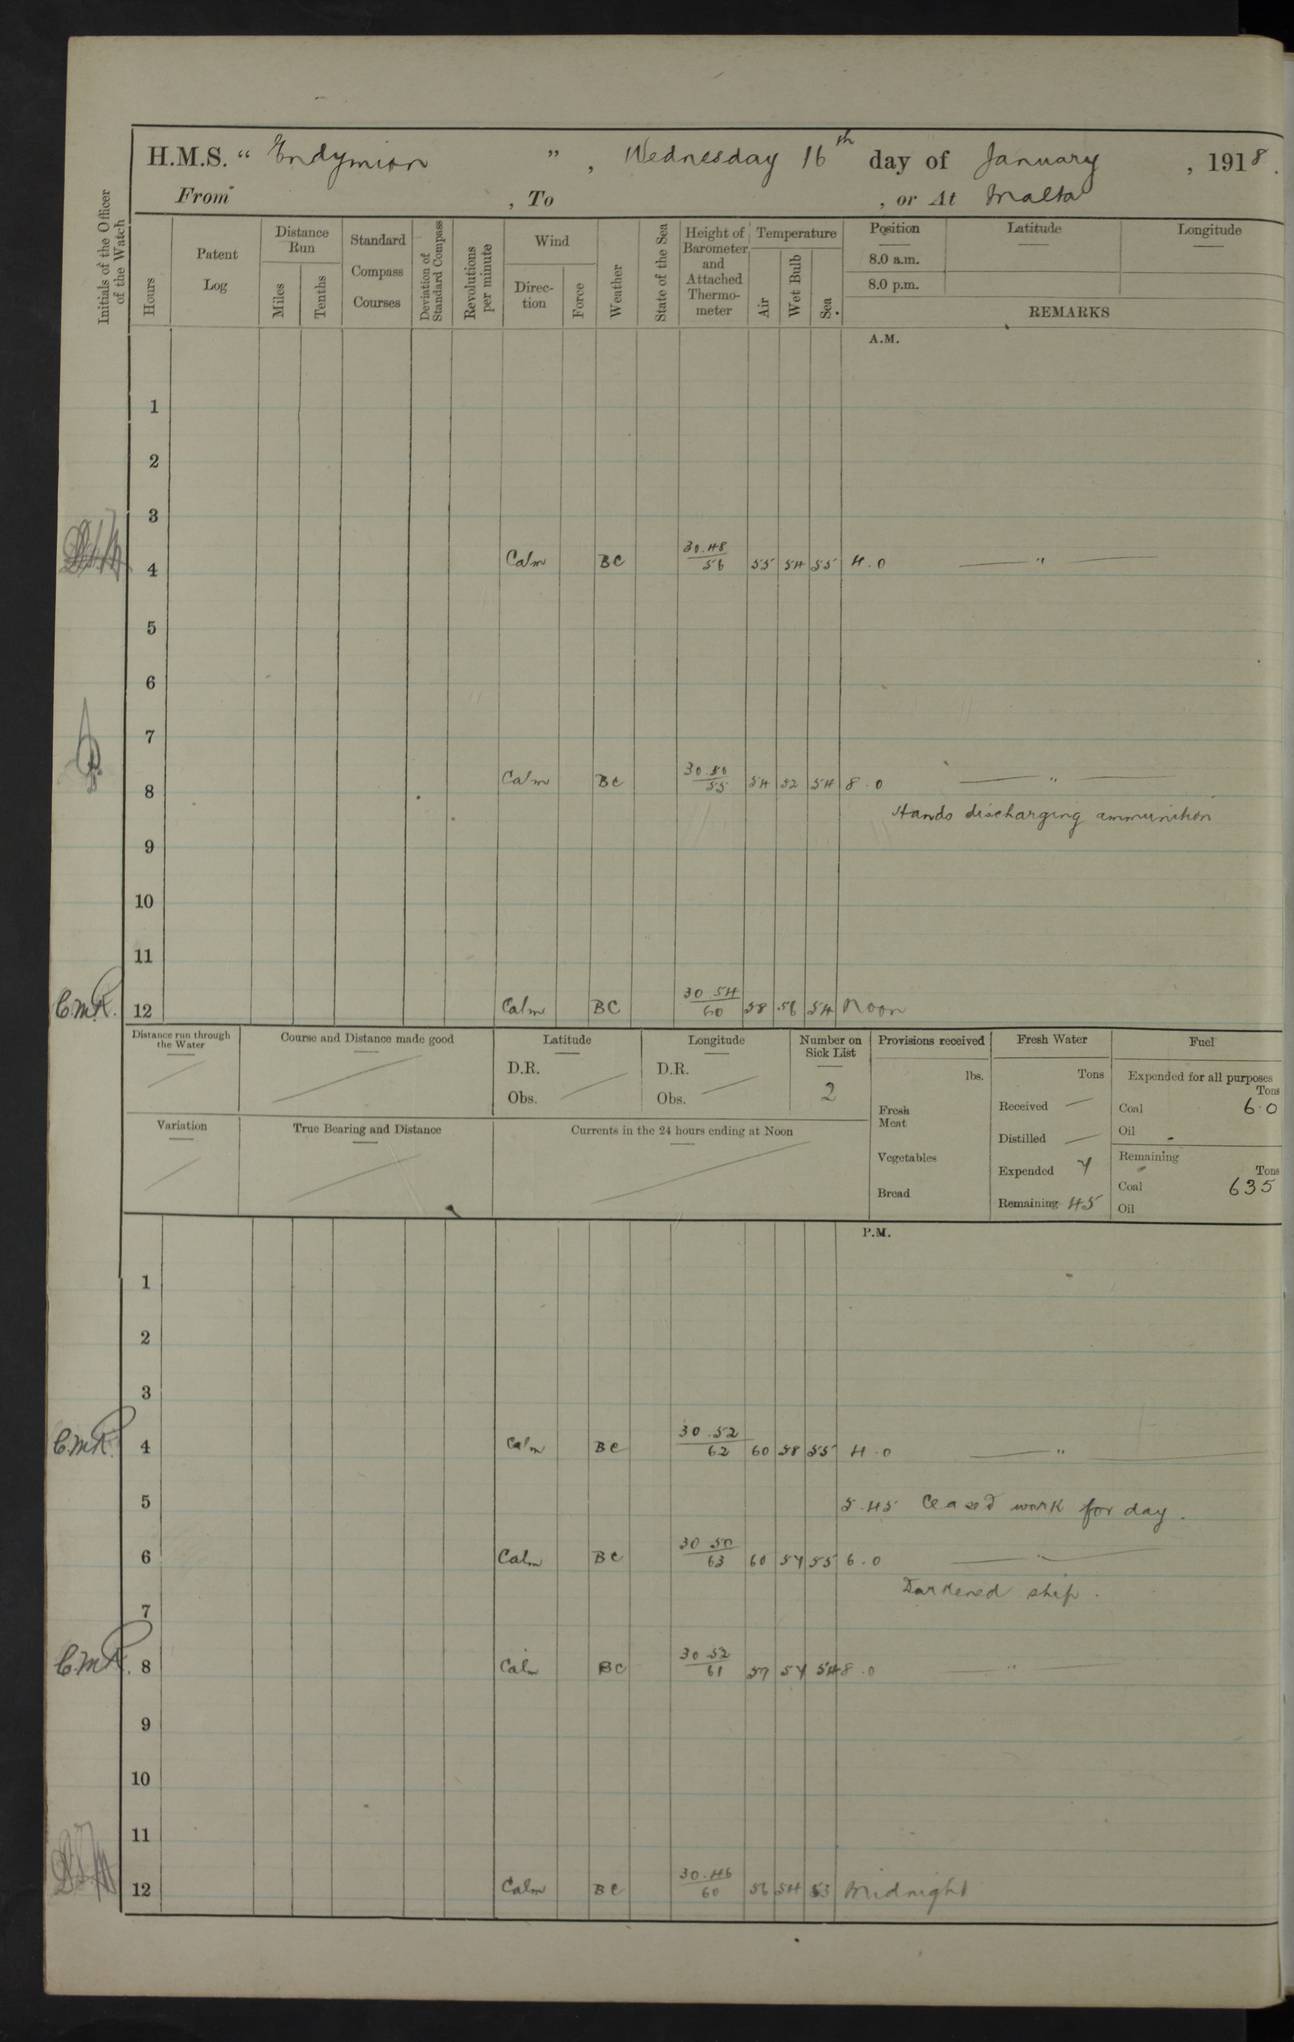 H.M.S. “ Endymion ” , Wednesday 16th day of January , 1918.
From , To , or At Malta
Initials of the Officer of the Watch
Hours
Patent Log
Distance Run
Miles
Tenths
Standard Compass Courses
Deviation of Standard Compass
Revolutions per minute
Wind
Direction
Force
Weather
State of the Sea
Height of Barometer and Attached Thermometer
Temperature
Air
Wet Bulb
Sea
Position Latitude Longitude
8.0 a.m.
8.0 p.m.
REMARKS
A.M.
1
2
3
4 Calm BC 30.48/56 55 54 55 4.0 — " —
5
6
7
8 Calm BC 30.50/55 54 52 54 8.0 — " —
Hands discharging ammunition
9
10
11
C.M.R. 12 Calm BC 30 54/60 58 56 54 Noon
Distance run through the Water
Course and Distance made good
Latitude
D.R.
Obs.
Longitude
D.R.
Obs.
Number on Sick List
2
Variation
True Bearing and Distance
Currents in the 24 hours ending at Noon
Provisions received
lbs.
Fresh Meat
Vegetables
Bread
Fresh Water
Tons
Received —
Distilled —
Expended 7
Remaining 45
Fuel
Expended for all purposes
Tons
Coal 6.0
Oil
Remaining
Tons
Coal 635
Oil
P.M.
1
2
3
C.M.R. 4 Calm BC 30.52/62 60 58 55 4.0 — " —
5 5.45 Ceased work for day.
6 Calm BC 30 50/63 60 57 55 6.0 — " —
Darkened ship.
7
C.M.R. 8 Calm BC 30 52/61 57 54 8.0 — " —
9
10
11
12 Calm BC 30.46/60 56 54 53 Midnight